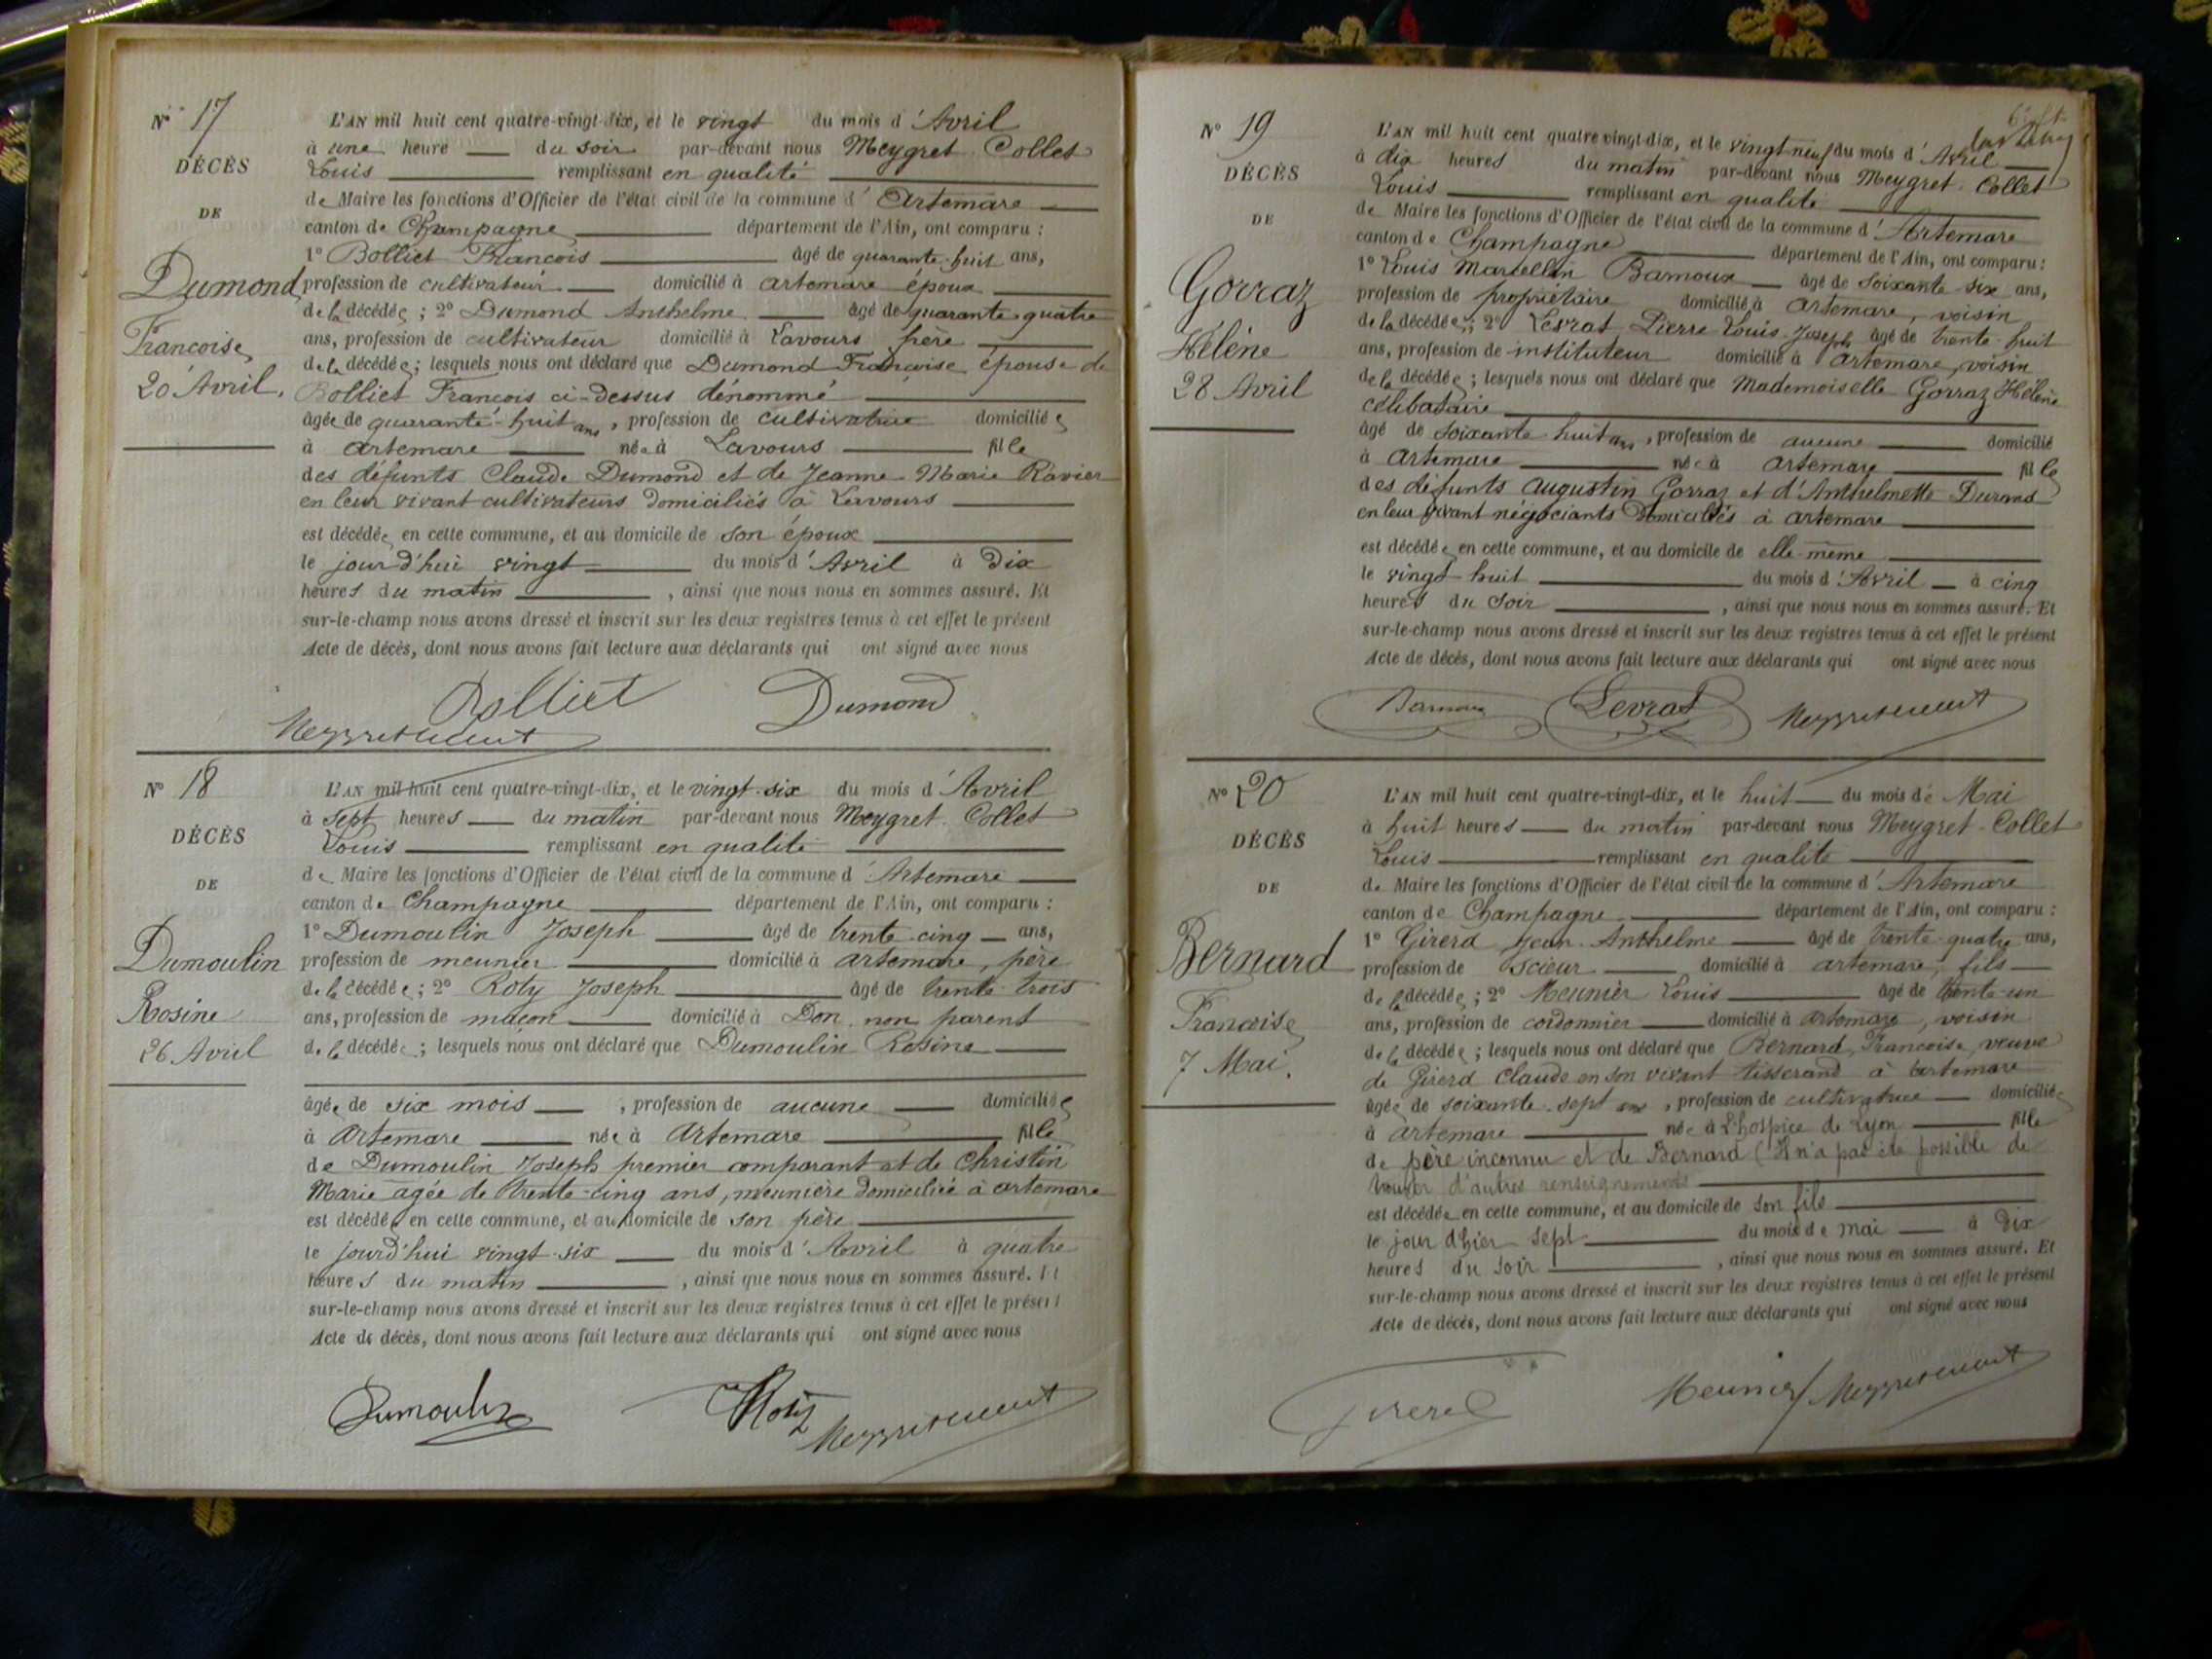 N° 17
DÉCÈS
DE
Dumond
Francoise
20 Avril.
L'AN mil huit cent quatre-vingt-dix, et le vingt du mois d'Avril
à une heure du soir par-devant nous Meygret-Collet
Louis remplissant en qualité
de Maire les fonctions d'Officier de l'état civil de la commune d'Artemare
canton de Champagne département de l'Ain, ont comparu :
1° Bolliet Francois âgé de quarante-huit ans,
profession de cultivateur domicilié à artemare époux
de la décédée ; 2° Dumond Anthelme âgé de quarante quatre
ans, profession de cultivateur domicilié à Lavours frère
de la décédée ; lesquels nous ont déclaré que Dumond Francoise épouse de
Bolliet Francois ci-dessus dénommé
âgée de quarante-huit ans, profession de cultivatrice domiciliée
à artemare née à Lavours fille
des défunts Claude Dumond et de Jeanne-Marie Ravier
en leur vivant cultivateurs domiciliés à Lavours
est décédée en cette commune, et au domicile de son époux
le jourd'hui vingt du mois d'Avril à Dix
heures du matin , ainsi que nous nous en sommes assuré. Et
sur-le-champ nous avons dressé et inscrit sur les deux registres tenus à cet effet le présent
Acte de décès, dont nous avons fait lecture aux déclarants qui ont signé avec nous
Bolliet Dumond
N° 18
DÉCÈS
DE
Dumoulin
Rosine
26 Avril
L'AN mil huit cent quatre-vingt-dix, et le vingt-six du mois d'Avril
à sept heures du matin par-devant nous Meygret-Collet
Louis remplissant en qualité
de Maire les fonctions d'Officier de l'état civil de la commune d'Artemare
canton de Champagne département de l'Ain, ont comparu :
1° Dumoulin Joseph âgé de trente-cinq ans,
profession de meunier domicilié à artemare, père
de la décédée ; 2° Roty Joseph âgé de trente-trois
ans, profession de maçon domicilié à Don non parent
de la décédée ; lesquels nous ont déclaré que Dumoulin Rosine
âgée de six mois , profession de aucune domiciliée
à Artemare née à Artemare fille
de Dumoulin Joseph premier comparant et de Christin
Marie agée de trente-cinq ans, meunière domiciliée à artemare
est décédée en cette commune, et au domicile de son père
le jourd'hui vingt-six du mois d'Avril à quatre
heures du matin , ainsi que nous nous en sommes assuré. Et
sur-le-champ nous avons dressé et inscrit sur les deux registres tenus à cet effet le présent
Acte de décès, dont nous avons fait lecture aux déclarants qui ont signé avec nous
Dumoulin Roty
N° 19
DÉCÈS
DE
Gorraz
Hélène
28 Avril
L'AN mil huit cent quatre-vingt-dix, et le vingt-neuf du mois d'Avril
à dix heures du matin par-devant nous Meygret-Collet
Louis remplissant en qualité
de Maire les fonctions d'Officier de l'état civil de la commune d'Artemare
canton de Champagne département de l'Ain, ont comparu :
1° Louis Marcellin Bamoux âgé de soixante-six ans,
profession de propriétaire domicilié à artemare, voisin
de la décédée ; 2° Levrat Pierre Louis-Joseph âgé de trente-huit
ans, profession de instituteur domicilié à artemare, voisin
de la décédée ; lesquels nous ont déclaré que Mademoiselle Gorraz Hélène
célibataire
âgé de soixante huit ans, profession de aucune domicilié
à artemare née à artemare fille
des défunts augustin Gorraz et d'Anthelmette Durand
en leur vivant négociants domiciliés à artemare
est décédée en cette commune, et au domicile de elle-même
le vingt-huit du mois d'Avril à cinq
heures du soir , ainsi que nous nous en sommes assuré. Et
sur-le-champ nous avons dressé et inscrit sur les deux registres tenus à cet effet le présent
Acte de décès, dont nous avons fait lecture aux déclarants qui ont signé avec nous
Bamoux Levrat
N° 20
DÉCÈS
DE
Bernard
Francoise
7 Mai.
L'AN mil huit cent quatre-vingt-dix, et le huit du mois de Mai
à huit heures du matin par-devant nous Meygret-Collet
Louis remplissant en qualité
de Maire les fonctions d'Officier de l'état civil de la commune d'Artemare
canton de Champagne département de l'Ain, ont comparu :
1° Girerd Jean-Anthelme âgé de trente-quatre ans,
profession de scieur domicilié à artemare, fils
de la décédée ; 2° Meunier Louis âgé de trente-un
ans, profession de cordonnier domicilié à artemare, voisin
de la décédée ; lesquels nous ont déclaré que Bernard, Francoise, veuve
de Girerd Claude en son vivant tisserand à artemare
âgée de soixante-sept ans, profession de cultivatrice domiciliée
à artemare née à L'hospice de Lyon fille
de père inconnu et de Bernard (Il n'a pas été possible de
trouver d'autres renseignements
est décédée en cette commune, et au domicile de son fils
le jour d'hier sept du mois de mai à Dix
heures du soir , ainsi que nous nous en sommes assuré. Et
sur-le-champ nous avons dressé et inscrit sur les deux registres tenus à cet effet le présent
Acte de décès, dont nous avons fait lecture aux déclarants qui ont signé avec nous
Girerd Meunier